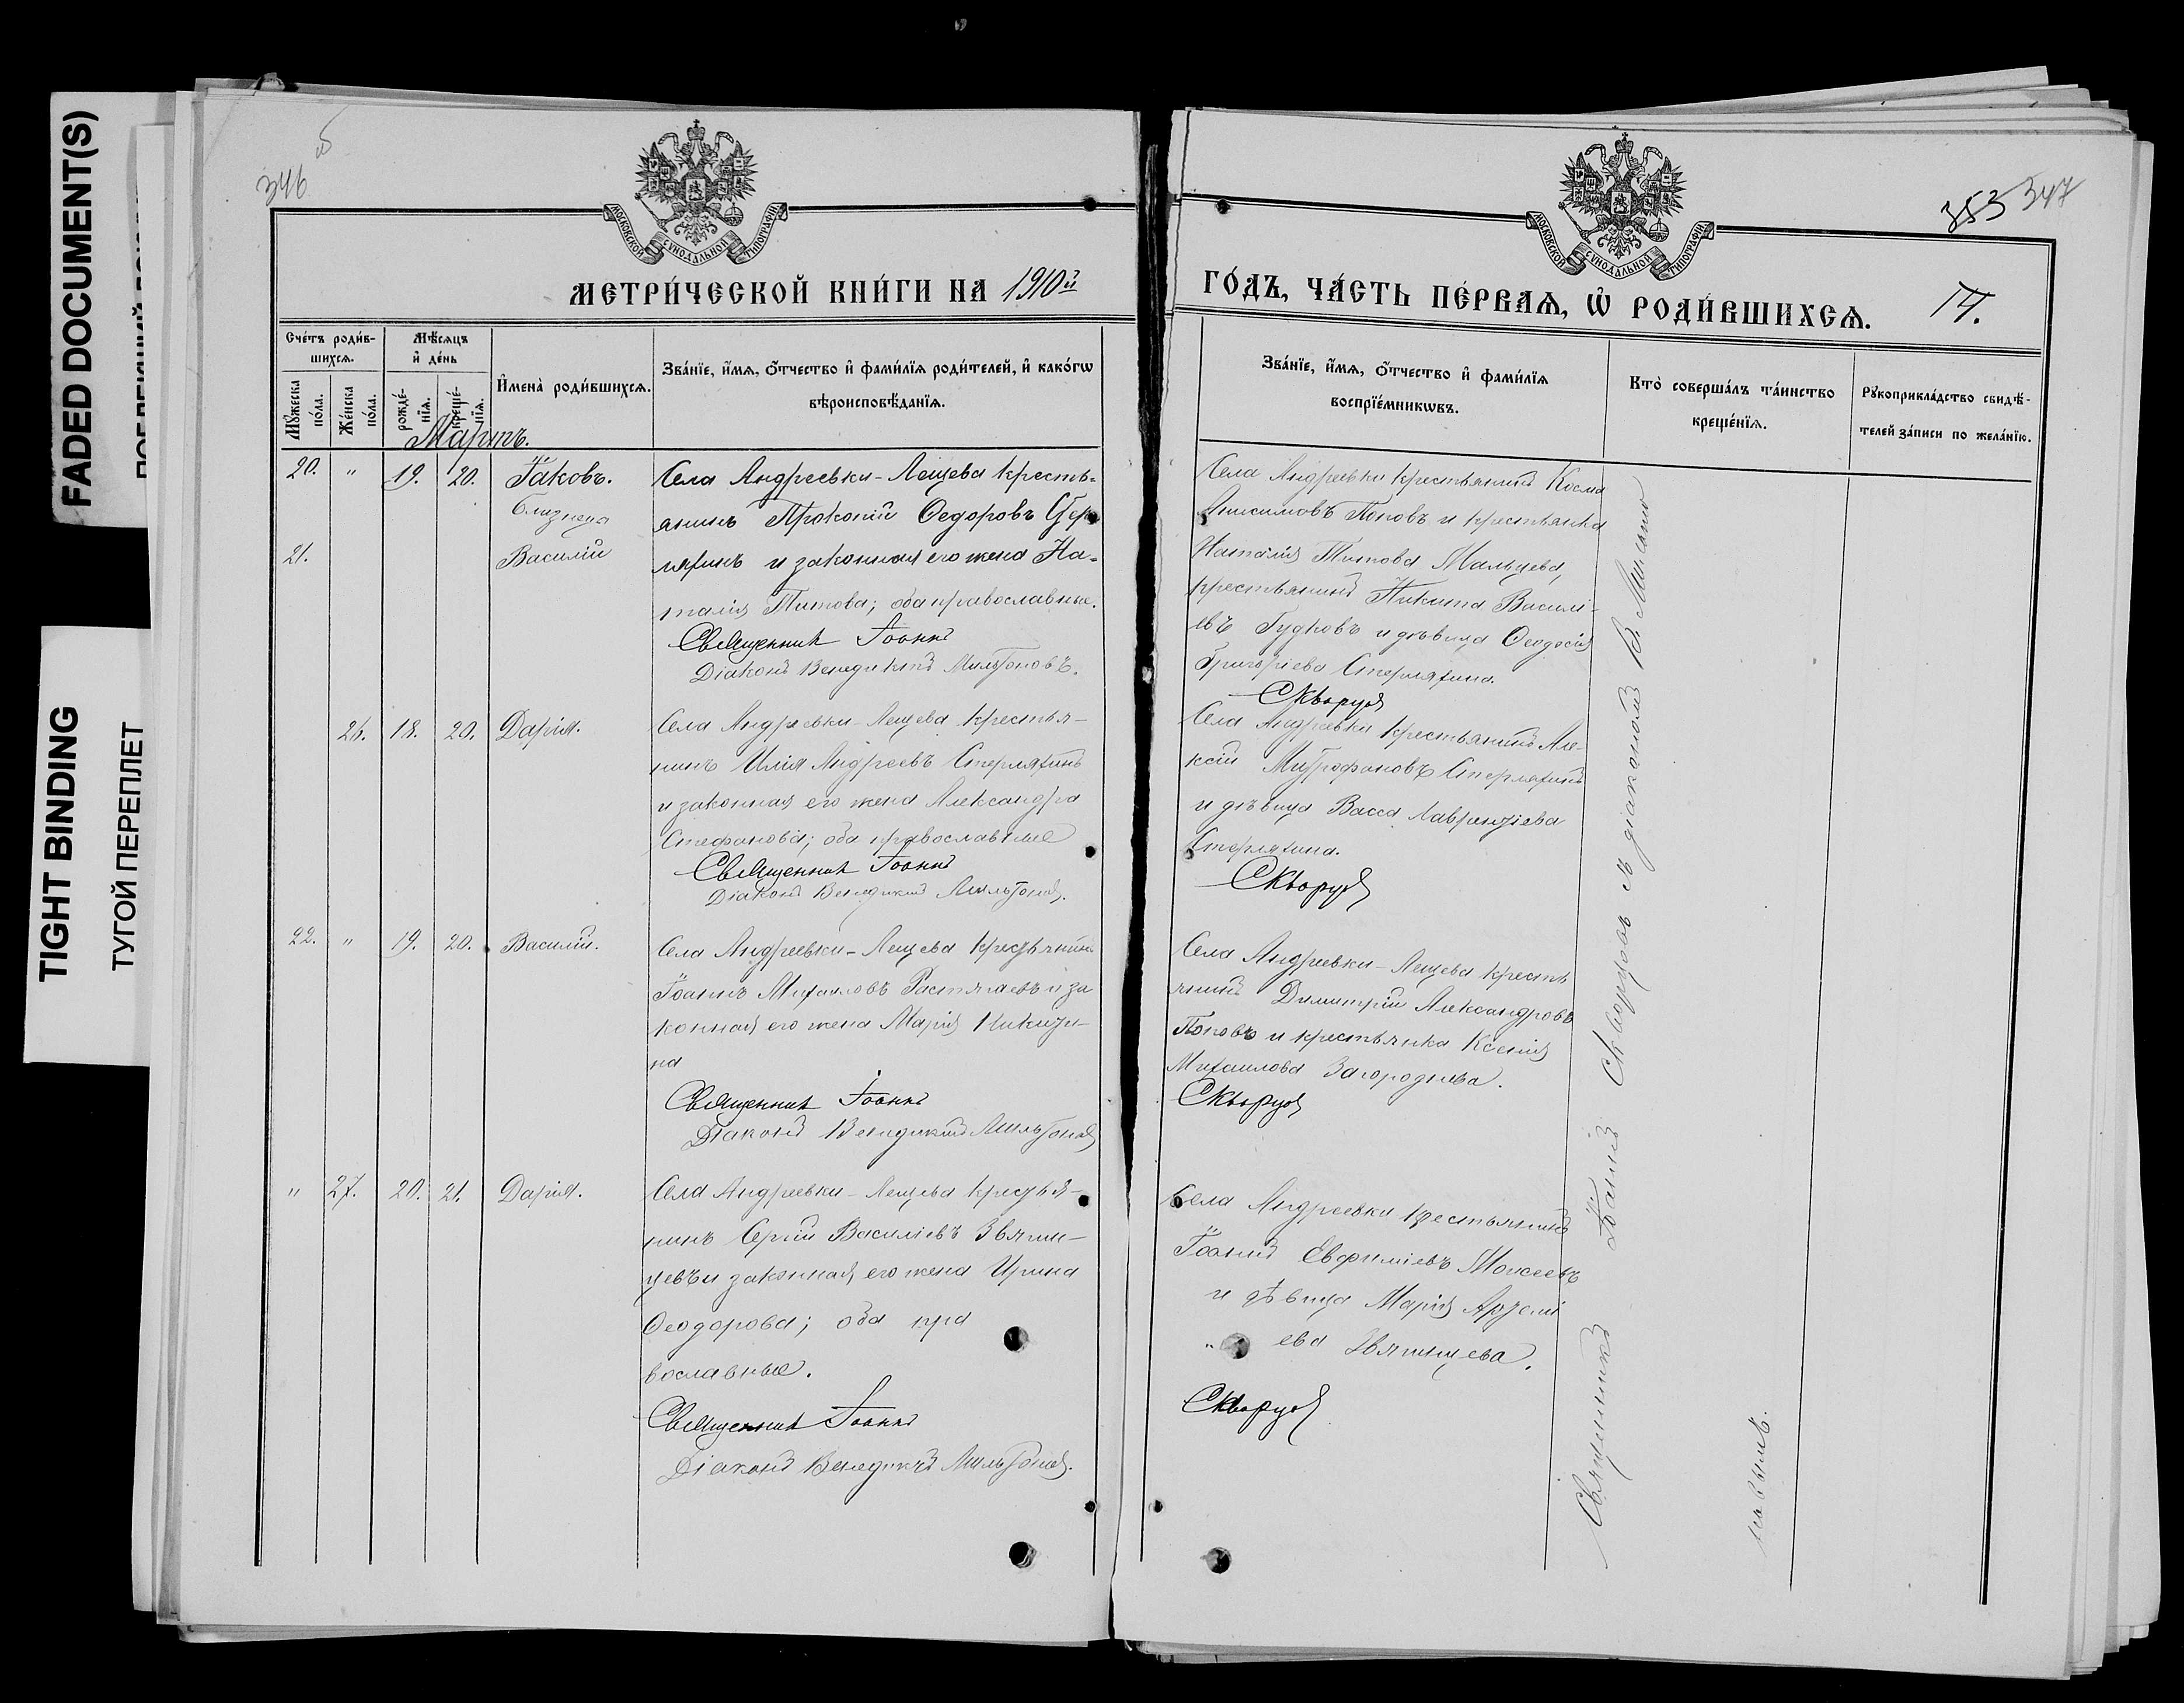 FADED DOCUMENT(S)
TIGHT BINDING
ТУГОЙ ПЕРЕПЛЕТ
346
МОСКОВСКОЙ СѴНОДАЛЬНОЙ ТИПОГРАФІИ
МЕТРИ́ЧЕСКОЙ КНИ́ГИ НА 1910й
Сче́тъ роди́в-
шихсѧ.
Мꙋ́жеска
по́ла.
Же́нска
по́ла.
Мѣ́сѧцъ
и҆ де́нь
рожде́-
нїѧ.
креще́-
нїѧ.
И҆мена̀ роди́вшихсѧ.
Зва́нїе, и҆́мѧ, ѻ҆́тчество и҆ фами́лїѧ роди́телей, и҆ како́гѡ
вѣроисповѣ́данїѧ.
Мартъ.
20. " 19. 20. Іаковъ.
Близнецы
21. Василій
Села Андреевки-Лещева кресть-
янинъ Прокопій Ѳедоровъ Стер
ляхинъ и законная его жена На-
талія Титова; оба православные.
Священник Іоаннъ
Діаконъ Венедиктъ Мильтоновъ.
26. 18. 20. Дарія.
Села Андреевки-Лещева крестья-
нинъ Илія Андреевъ Стерляхинъ
и законная его жена Александра
Стефанова; оба православные
Священник Іоаннъ
Діаконъ Венедиктъ Мильтоновъ.
22. " 19. 20. Василій.
Села Андреевки-Лещева крестьянинъ
Іоаннъ Михаиловъ Растягаевъ и за
конная его жена Марія Никити-
на
Священник Іоаннъ
Діаконъ Венедиктъ Мильтоновъ
" 27. 20. 21. Дарія.
Села Андреевки-Лещева крестья-
нинъ Сергій Василіевъ Звягин-
цевъ и законная его жена Ирина
Ѳеодорова; оба пра
вославные.
Священник Іоаннъ
Діаконъ Венедиктъ Мильтоновъ.
353 347
МОСКОВСКОЙ СѴНОДАЛЬНОЙ ТИПОГРАФІИ
ГО́ДЪ, ЧА́СТЬ ПЕ́РВАѦ, Ѡ҆ РОДИ́ВШИХСѦ.
Зва́нїе, и҆́мѧ, ѻ҆́тчество и҆ фами́лїѧ
воспрїе́мникѡвъ.
Кто̀ соверша́лъ та́инство
креще́нїѧ.
Рꙋкоприкла́дство свидѣ́-
телей за́писи по жела́нїю.
Села Андреевки крестьянинъ Косма
Анисимовъ Поповъ и крестьянка
Наталія Титова Мальцева,
крестьянинъ Никита Василі-
евъ Гудковъ и дѣвица Ѳеодосія
Григоріева Стерляхина.
Скворцов
Села Андреевки крестьянинъ Але-
ксій Митрофановъ Стерляхинъ
и дѣвица Васса Лаврентіева
Стерляхина.
Скворцов
Села Андреевки-Лещева кресть
янинъ Димитрій Александровъ
Поповъ и крестьянка Ксенія
Михаилова Загороднева.
Скворцов
Села Андреевки крестьянинъ
Іоаннъ Евфиміевъ Моисеевъ
и дѣвица Марія Артемі
" ева Звягинцева.
Скворцов
Священникъ Іоаннъ Скворцовъ съ діакономъ В. Мильто
новымъ.